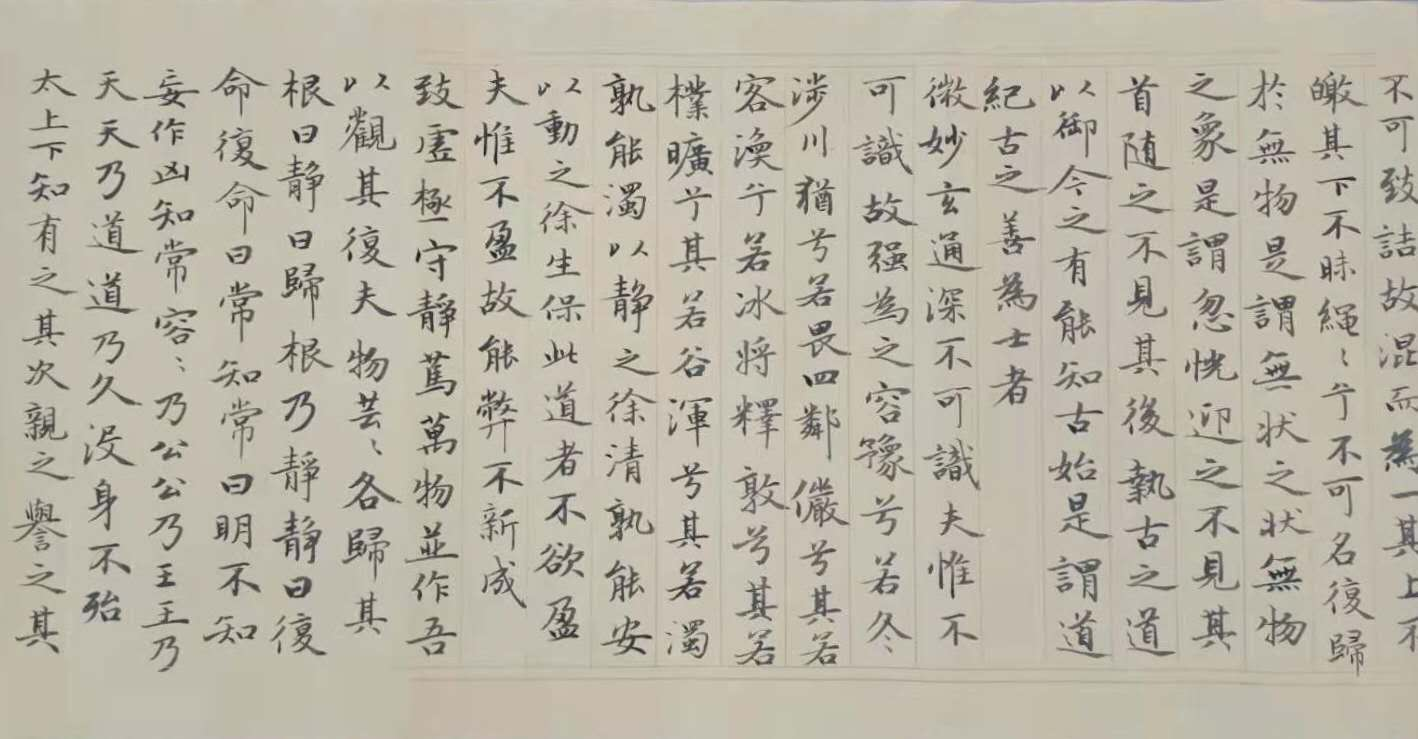 不可致詰故混而為一其上不
皦其下不昧繩〻兮不可名復歸
於無物是謂無狀之狀無物
之象是謂忽恍迎之不見其
首随之不見其後執古之道
以御今之有能知古始是謂道
紀古之善為士者
微妙玄通深不可識夫惟不
可識故强為之容豫兮若冬
涉川猶兮若畏四鄰儼兮其若
客渙兮若冰將釋敦兮其若
樸曠兮其若谷渾兮其若濁
孰能濁以静之徐清孰能安
以動之徐生保此道者不欲盈
夫惟不盈故能弊不新成
致虛極守靜篤萬物並作吾
以觀其復夫物芸〻各歸其
根曰静曰歸根乃靜靜曰復
命復命曰常知常曰明不知
妄作凶知常容〻乃公公乃王王乃
天天乃道道乃久没身不殆
太上下知有之其次親之譽之其